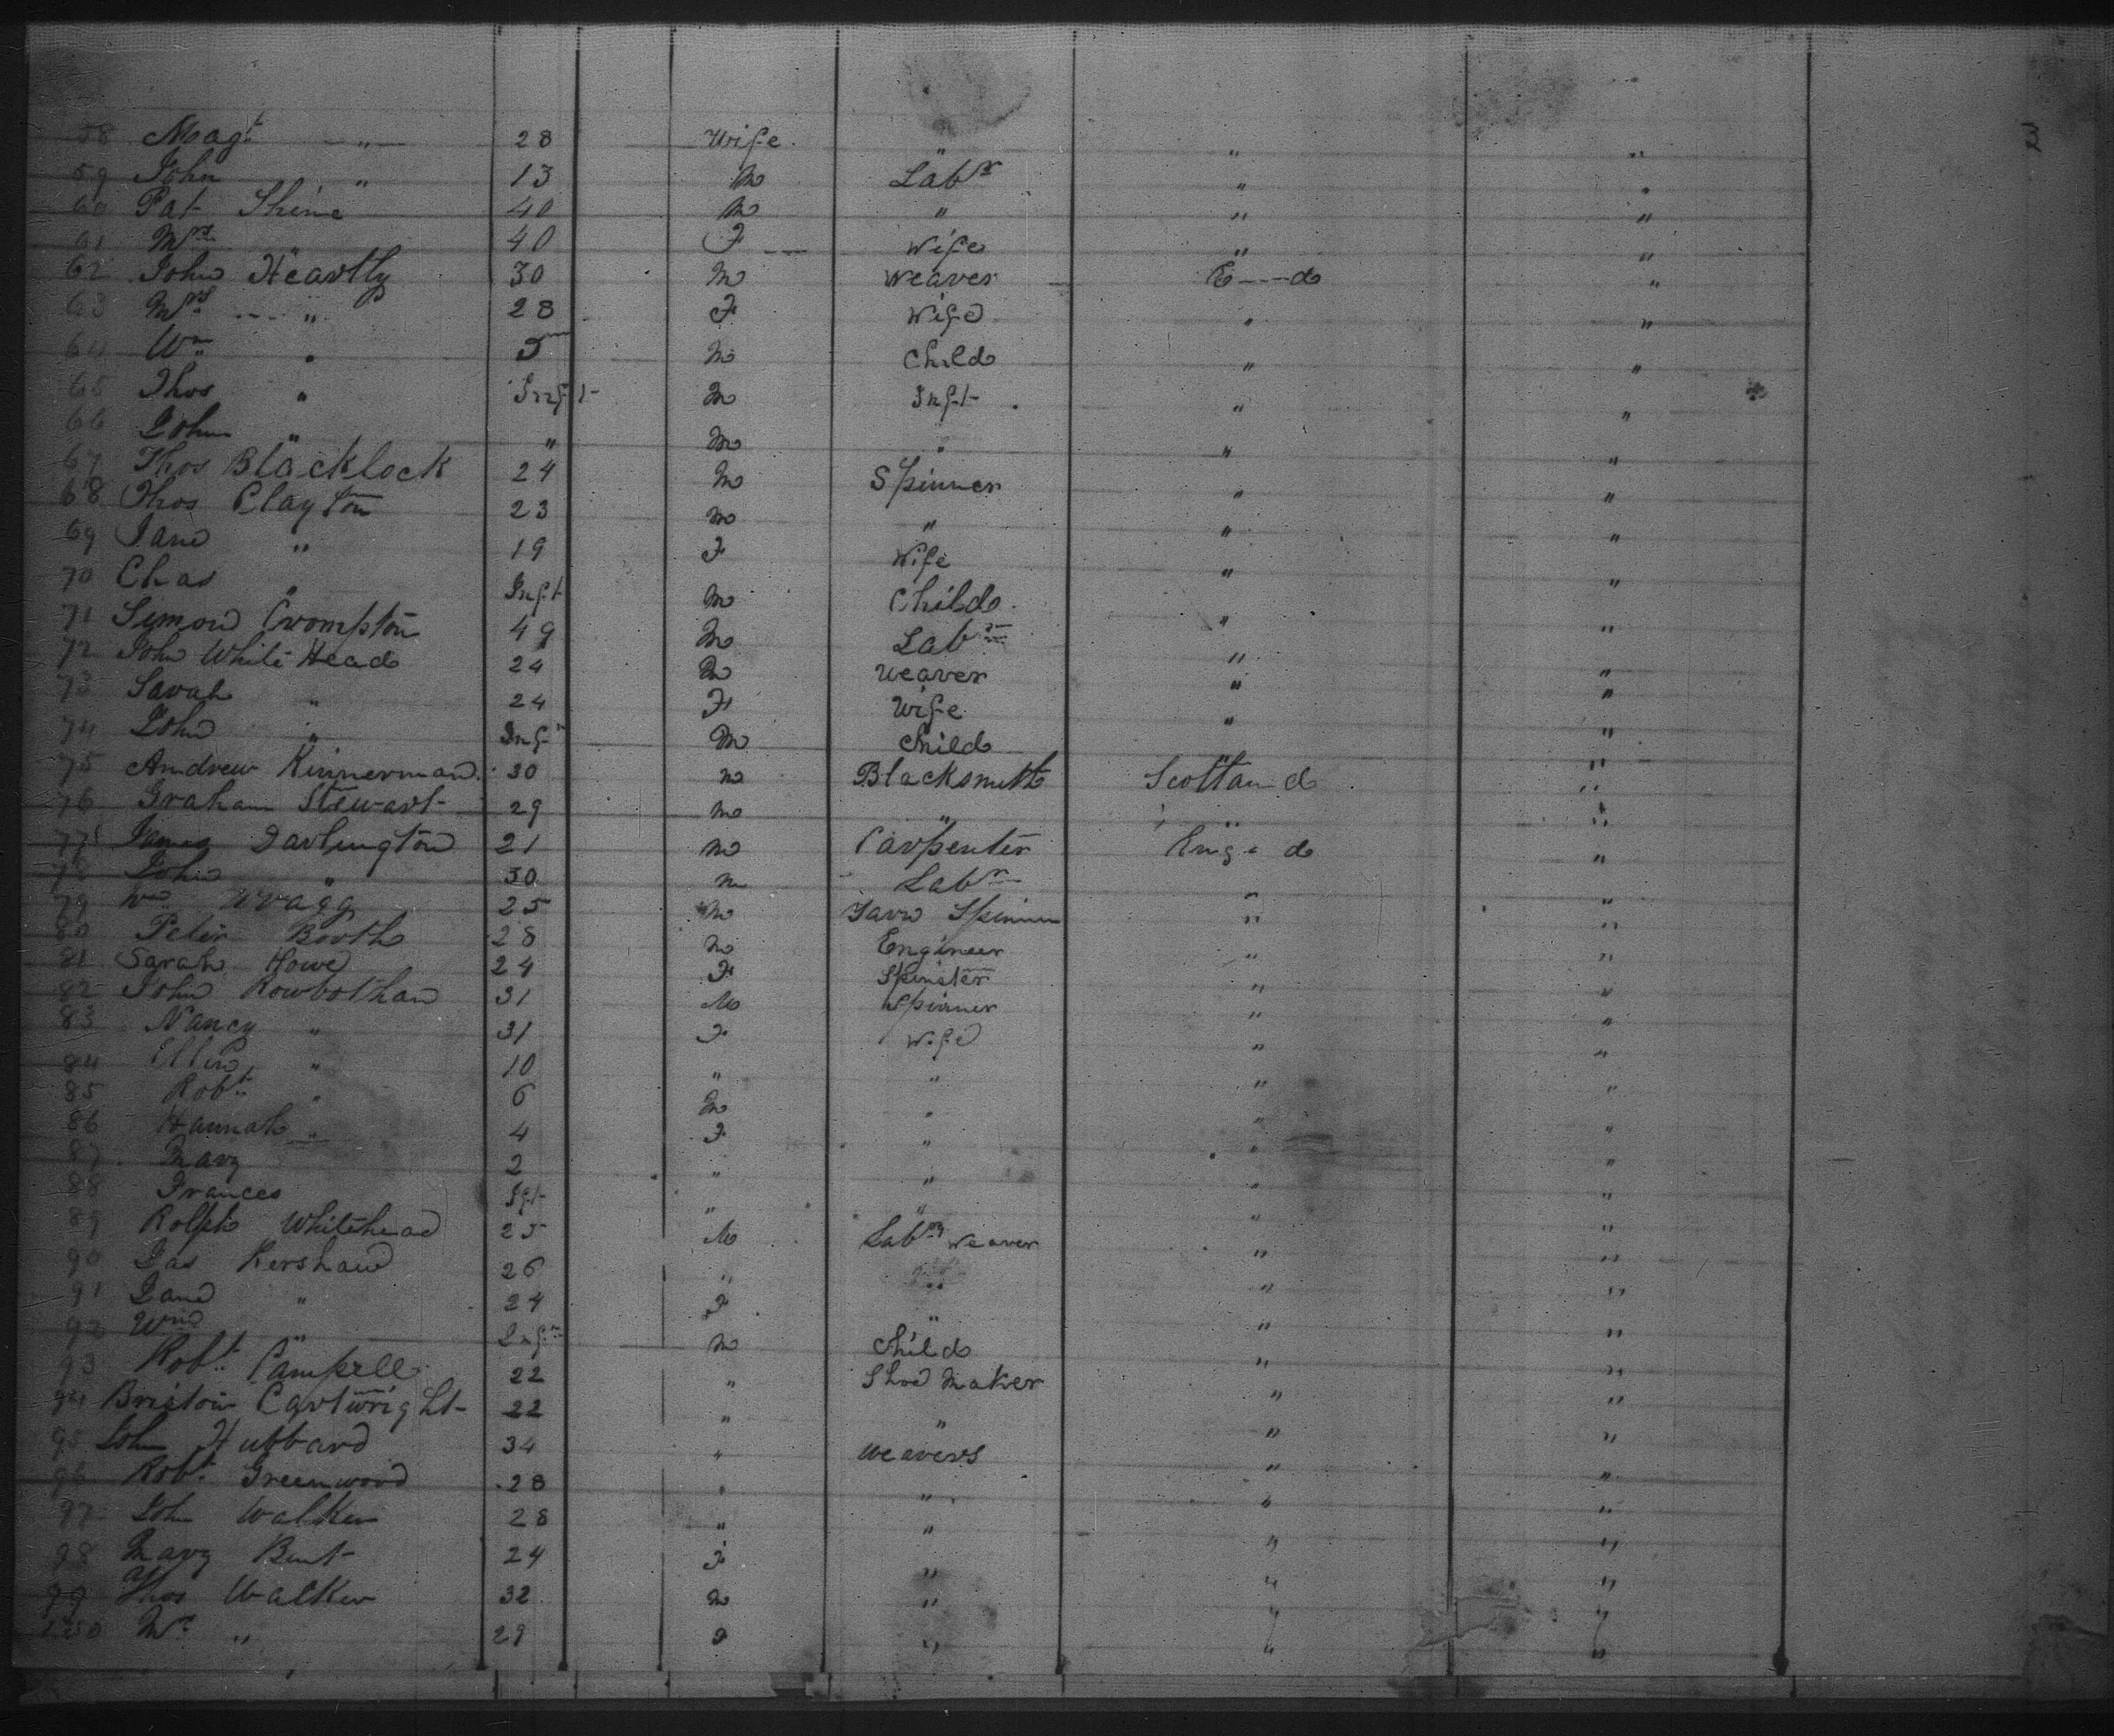 58 Magt " 28 Wife " " "
59 John " 13 M Labr " "
60 Pat Shine 40 M " " "
61 Mrs 40 F Wife " "
62 John Heartly 30 M Weaver E---d "
63 Mrs " 28 F Wife " "
64 Wm " 5 M Child " "
65 Thos " Inft M Inft " "
66 John " " M " " "
67 Thos Blacklock 24 M Spinner " "
68 Thos Clayton 23 M " " "
69 Jane " 19 F Wife " "
70 Chas " Inft M Child " "
71 Symon Crompton 49 M Labr " "
72 John White Head 24 M Weaver " "
73 Sarah " 24 F Wife " "
74 John " Inft M Child " "
75 Andrew Kinnerman 30 M Blacksmith Scotland "
76 Graham Stewart 29 M " " "
77 James Darlington 21 M Carpenter Eng d "
78 John " 30 M Labr " "
79 Wm Wragg 25 M Yarn Spinner " "
80 Peter Booth 28 M Engineer " "
81 Sarah Howe 24 F Spinster " "
82 John Rowbotham 31 M Spinner " "
83 Nancy " 31 F Wife " "
84 Ellen " 10 " " " "
85 Robt " 6 M " " "
86 Hannah " 4 F " " "
87 Mary 2 " " " "
88 Frances Ift " " " "
89 Rolph Whitehead 25 M Labr Weaver " "
90 Jas Kershaw 26 " " " "
91 Jane " 24 F " " "
92 Wm " Inft M Child " "
93 Robt Campell 22 " Shoe Maker " "
94 Bristow Cartwright 22 " " " "
95 John Hubbard 34 " Weavers " "
96 Robt Greenwood 28 " " " "
97 John Walker 28 " " " "
98 Mary Bent 24 F " " "
99 Thos Walker 32 M " " "
100 Mrs " 29 F " " "